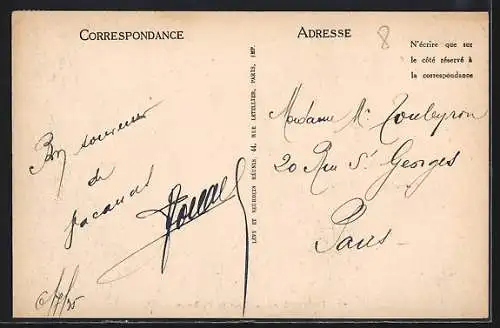 CORRESPONDANCE
ADRESSE
8
N'écrire que sur
le côté réservé à
la correspondance
LÉVY ET NEURDEIN RÉUNIS, 44, RUE LETELLIER, PARIS, IMP.
Bon souvenir
de
vacances
Madame M. Touleyron
20 Rue St Georges
Paris